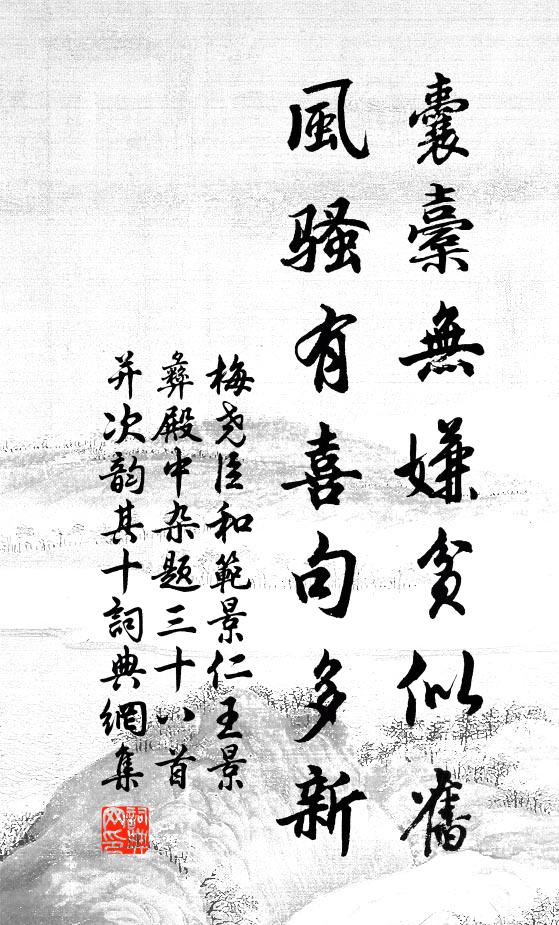 囊橐無嫌貧似舊
風騷有喜句多新
梅尧臣和範景仁王景
彝殿中杂题三十八首
并次韵其十詞典網集